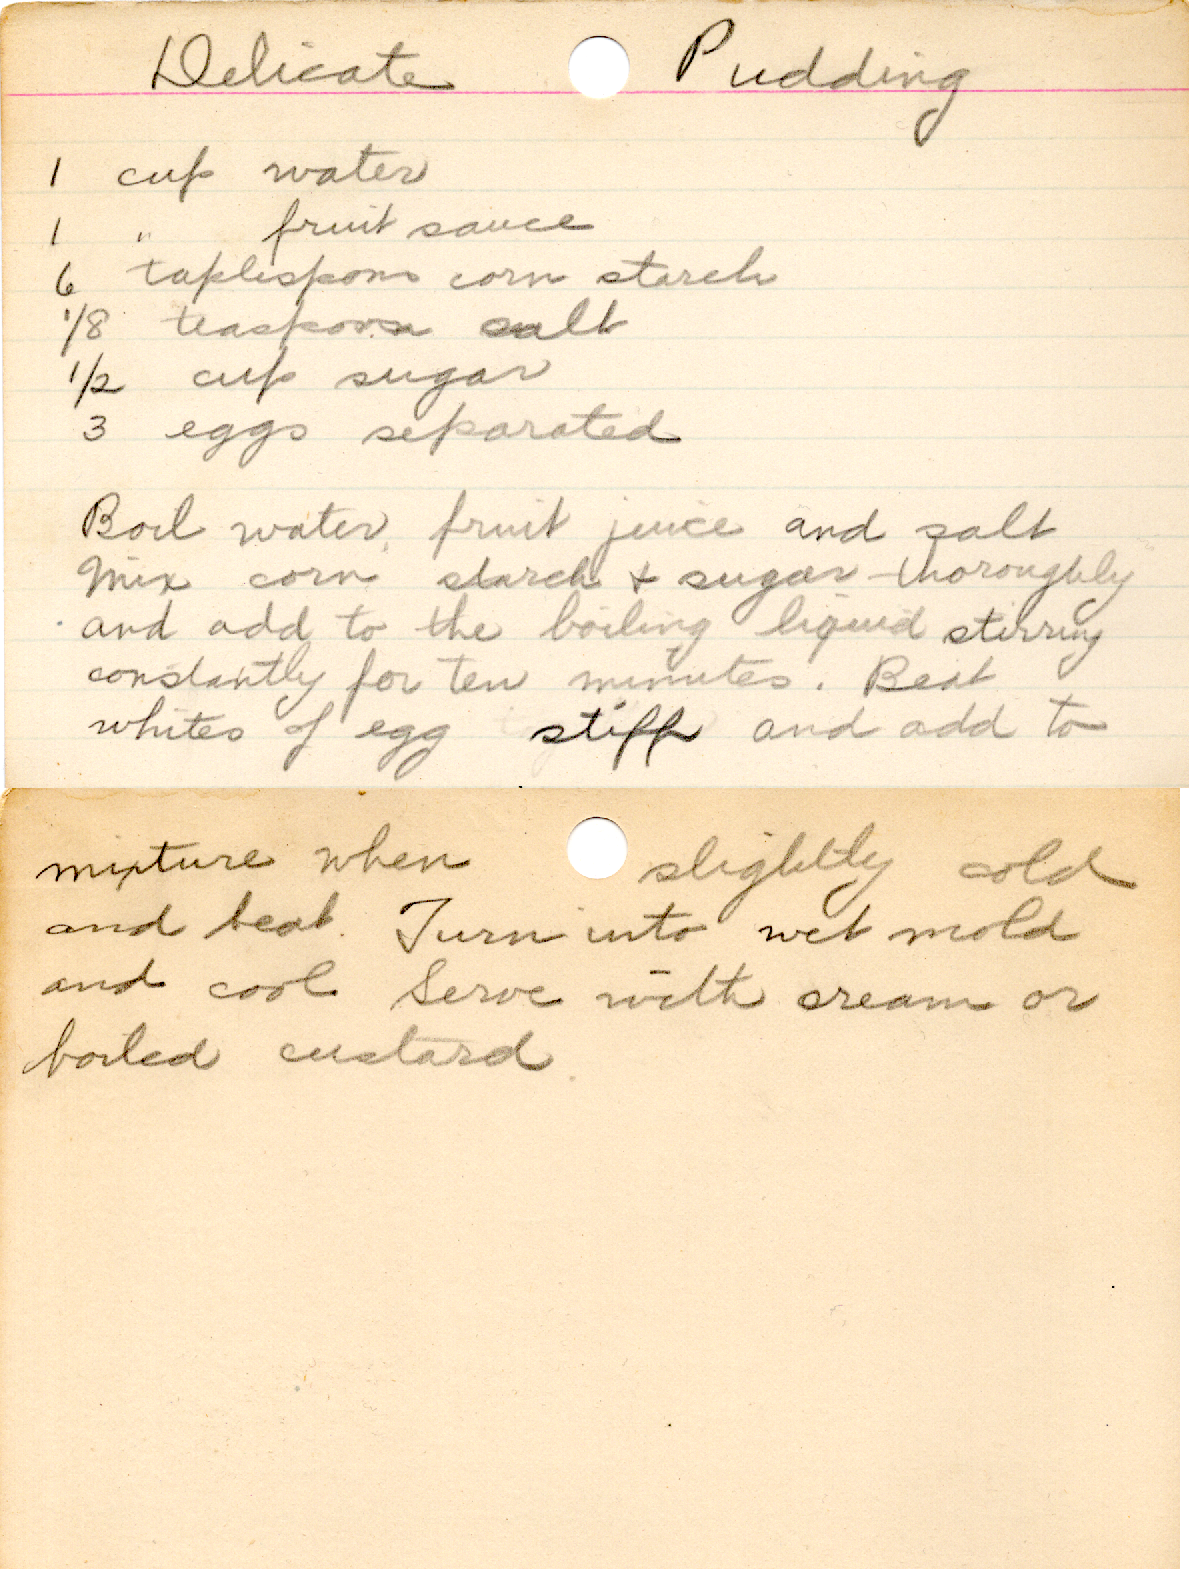 Delicate Pudding
1 cup water
1 " fruit sauce
6 taplespoons corn starch
1/8 teaspoon salt
1/2 cup sugar
3 eggs separated
Boil water, fruit juice and salt
Mix corn starch + sugar thoroughly
and add to the boiling liquid stirring
constantly for ten minutes. Beat
whites of egg stiff and add to
mixture when slightly cold
and beat. Turn into wet mold
and cool Serve with cream or
boiled custard.